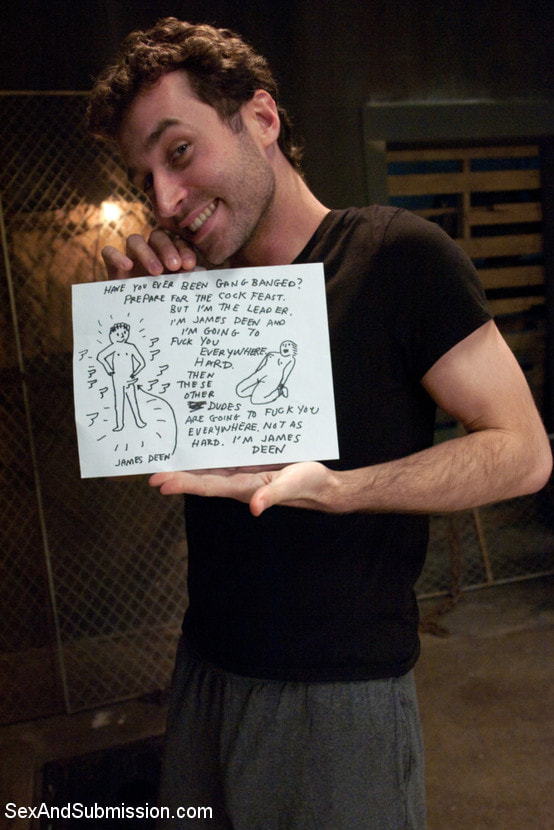 HAVE YOU EVER BEEN GANG BANGED?
PREPARE FOR THE COCK FEAST.
BUT I'M THE LEADER.
I'M JAMES DEEN AND
I'M GOING TO
FUCK YOU
EVERYWHERE,
HARD.
THEN
THESE
OTHER
DUDES
ARE GOING TO FUCK YOU
EVERYWHERE. NOT AS
HARD. I'M JAMES
DEEN
JAMES DEEN
SexAndSubmission.com